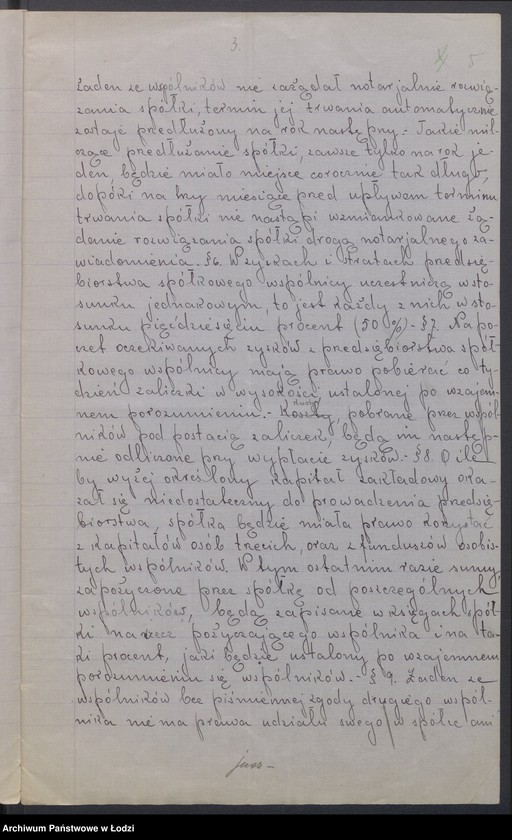 3.
5
żaden ze wspólników nie zażądał notarjalnie rozwią-
zania spółki, termin jej trwania automatycznie
zostaje przedłużony na rok następny. Takie mil-
czące przedłużanie spółki, zawsze tylko na rok je-
den, będzie miało miejsce corocznie tak długo,
dopóki na trzy miesiące przed upływem terminu
trwania spółki nie nastąpi wzmiankowane żą-
danie rozwiązania spółki drogą notarjalnego za-
wiadomienia. § 6. W zyskach i stratach przedsię-
biorstwa spółkowego wspólnicy uczestniczą w sto-
sunku jednakowym, to jest każdy z nich w sto-
sunku pięćdziesięciu procent (50%) - § 7. Na po-
czet oczekiwanych zysków z przedsiębiorstwa spół-
kowego wspólnicy mają prawo pobierać co ty-
dzień zaliczki w wysokości, ustalonej po wzajem-
nem porozumieniu. - Koszty kwoty pobrane przez wspól-
ników pod postacią zaliczek, będą im następ-
nie odliczone przy wypłacie zysków. - § 8. O ile
by wyżej określony kapitał zakładowy oka-
zał się niedostateczny do prowadzenia przedsię-
biorstwa, spółka będzie miała prawo korzystać
z kapitałów osób trzecich, oraz z funduszów osobis-
tych wspólników. W tym ostatnim razie sumy,
zapożyczone przez spółkę od poszczególnych
wspólników, będą zapisane w księgach spół-
ki na rzecz pożyczającego wspólnika i na ta-
ki procent, jaki będzie ustalony po wzajemnem
porozumieniu się wspólników. - § 9. Żaden ze
wspólników bez piśmiennej zgody drugiego wspól-
nika nie ma prawa udziału swego w spółce ani
Archiwum Państwowe w Łodzi